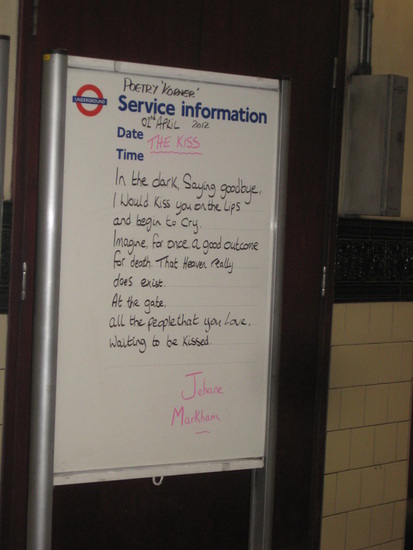 POETRY 'KORNER'
UNDERGROUND
Service information
01ST APRIL 2012
Date THE KISS
Time
In the dark, Saying goodbye,
I Would Kiss you on the Lips
and begin to Cry.
Imagine, for once, a good outcome
for death. That Heaven really
does exist.
At the gate,
all the people that you Love,
Waiting to be Kissed.
Jehane
Markham